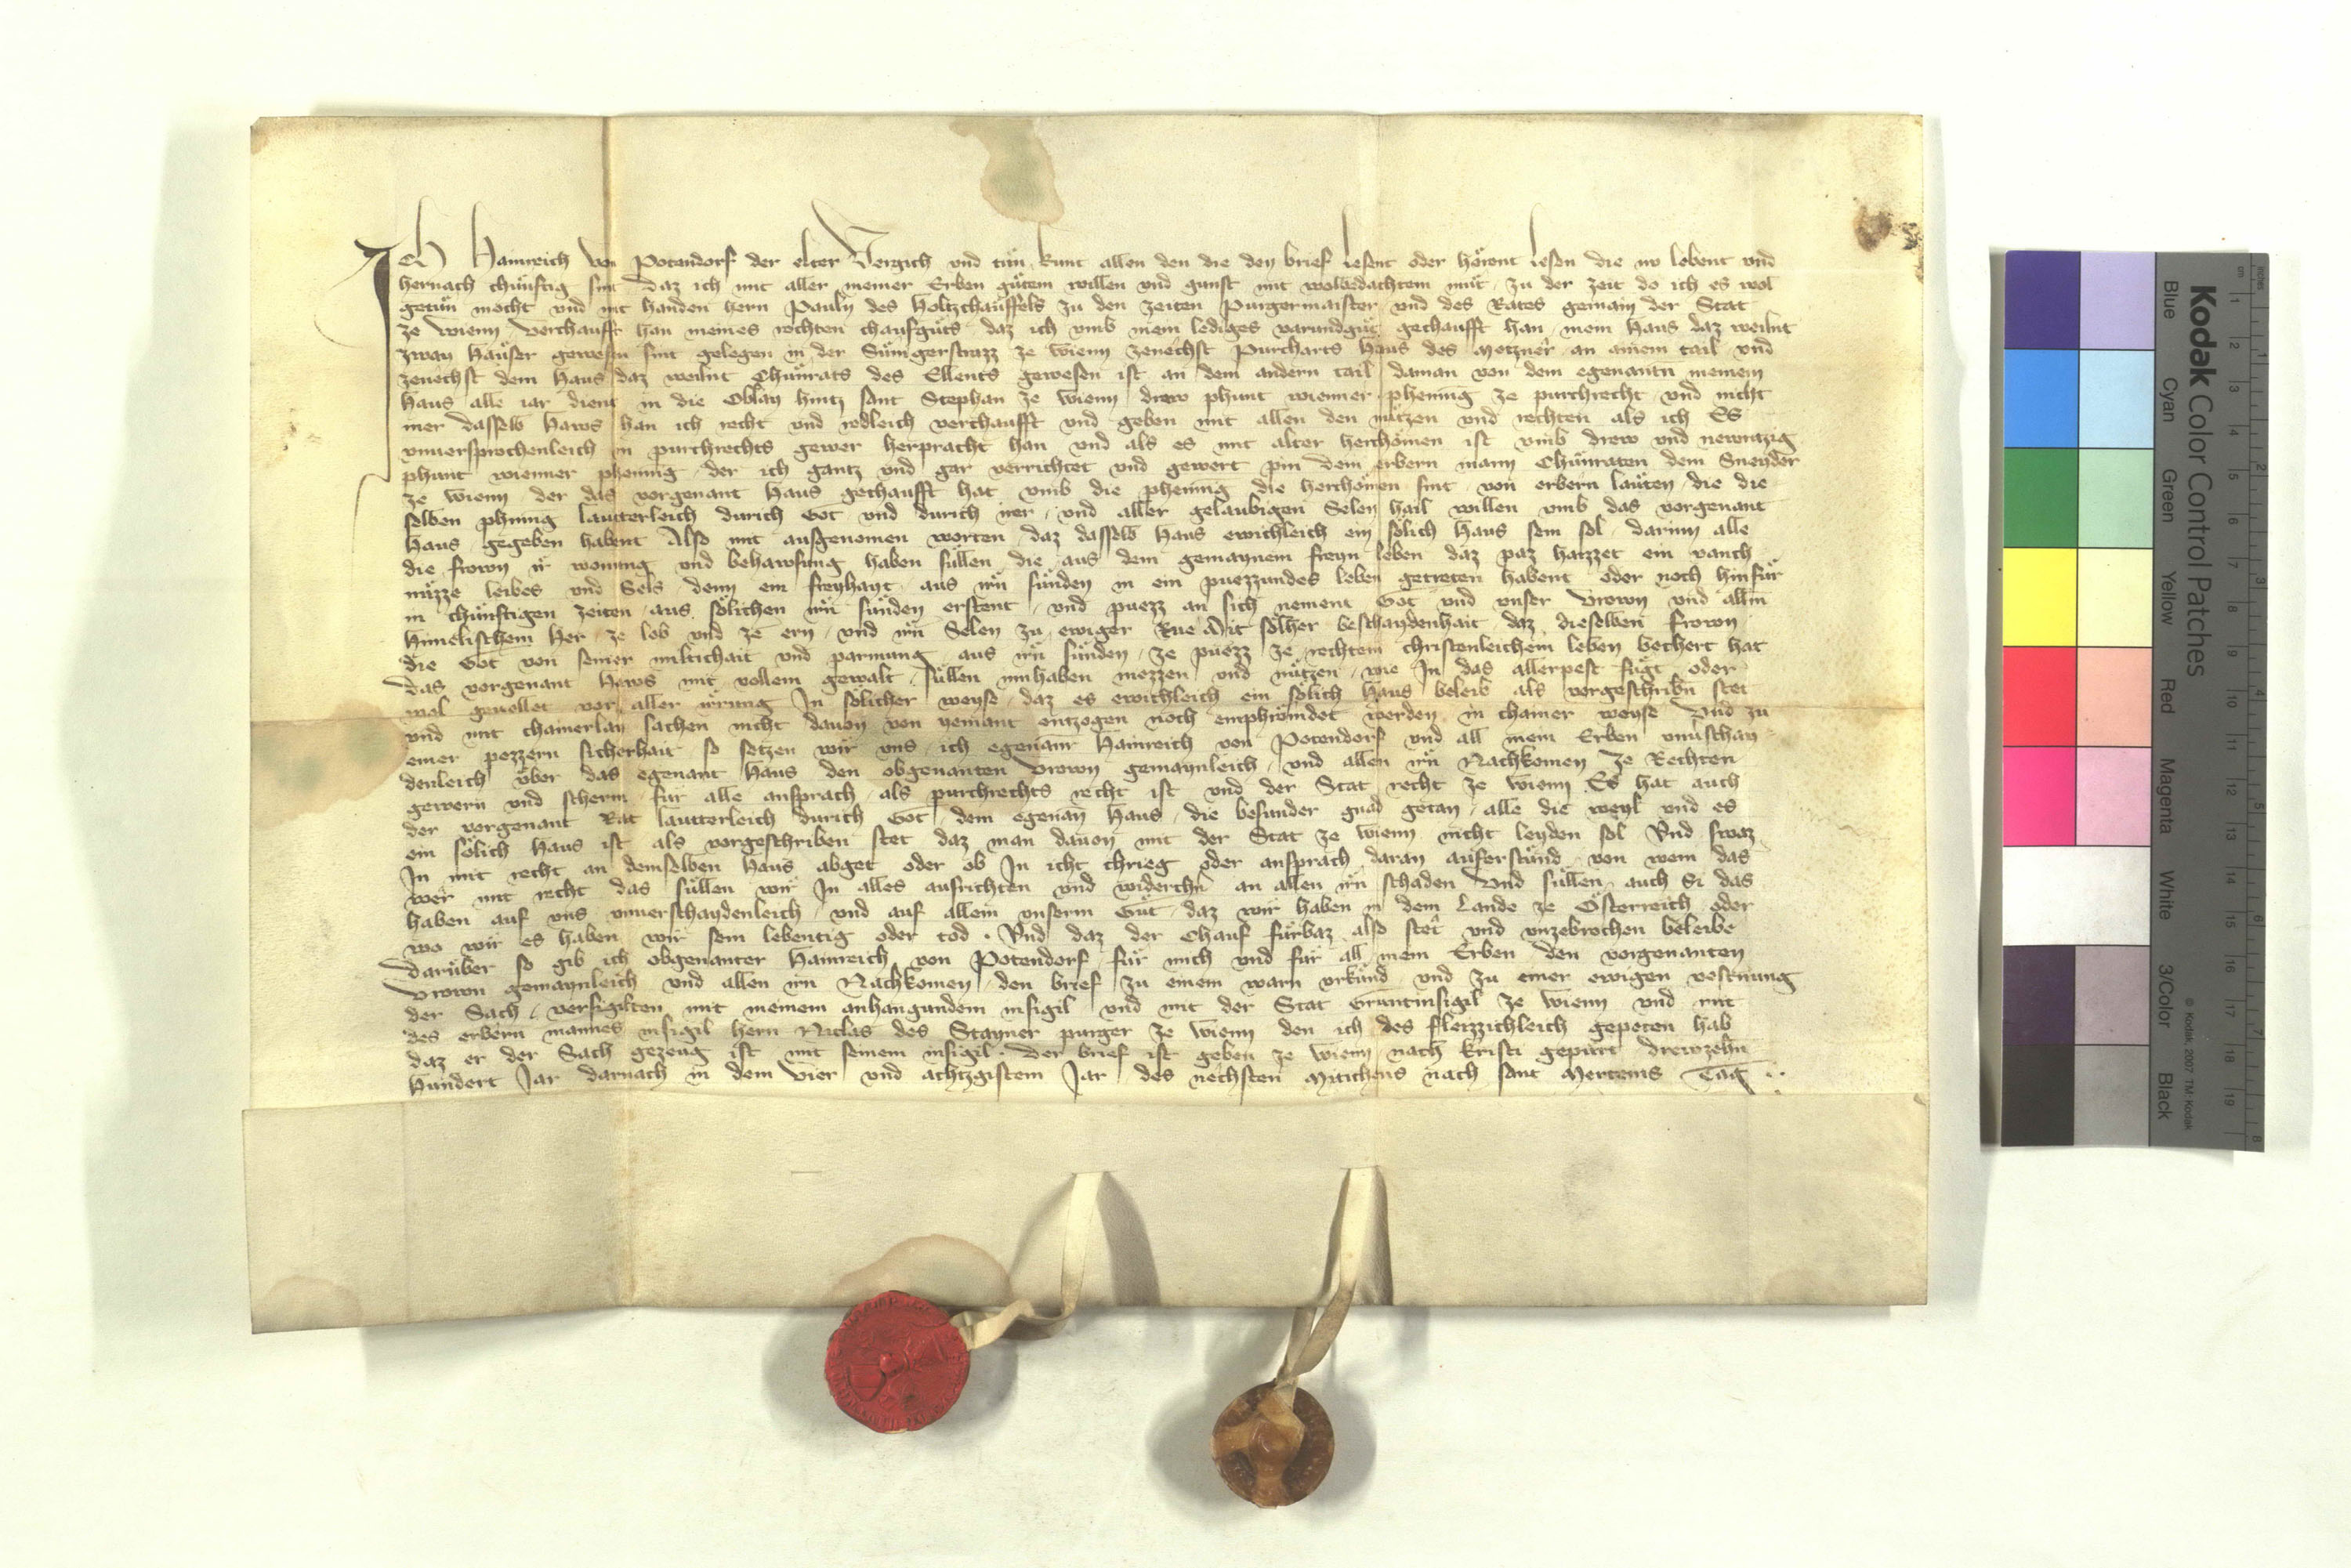 Ich Hainreich von Potendorf der elter Vergich vnd tůn kunt allen den die den brief lesent oder hörent lesen die nv lebent vnd
hernach chůnftig sint daz ich mit aller meiner Erben gůtem willen vnd gunst mit wolbedachtem můt zu der zeit do ich es wol
getůn mocht vnd mit handen hern Pauln des Holtzchäuffels zu den zeiten Purgermaister vnd des Rates gemain der Stat
ze Wienn verchaufft han meines rechten chaufgůts daz ich vmb mein lediges varundgůt gechaufft han mein Haus daz weilnt
zway Häuser gewesen sint gelegen in der Sůnigerstrazz ze Wienn zenechst Purcharts Haus des Metzner an ainem tail vnd
zenechst dem Haus daz weilnt Chůnrats des Ellents gewesen ist an dem andern tail daman von dem egenantn meinem
Haus alle iar dient in die Oblay hintz sant Stephan ze Wienn drew phunt wienner phennig ze purchrecht vnd nicht
mer dasselb Haws han ich recht und redleich verchaufft vnd geben mit allen den nützen vnd rechten als ich Es
vnuersprochenleich in purchrechts gewer herpracht han vnd als es mit alter herchömen ist vmb drew vnd newntzig
phunt wienner phennig der ich gantz vnd gar verrichtet vnd gewert pin dem erbern mann Chůnraten dem Sneyder
ze Wienn der das vorgenant Haus gechaufft hat vmb die phennig die herchömen sint von erbern läuten die die
selben phning lautterleich durich Got vnd durich irer vnd aller gelaubigen Selen hail willen vmb das vorgenant
Haus gegeben habent Also mit ausgenomen worten daz dasselb Haus ewichleich ein sölich Haus sein sol darinn alle
die frown ir wonung vnd behawsung haben süllen die aus dem gemaynem freyn leben daz paz hazzet ein vanch
nüzze leibes vnd Sels denn ein freyhayt aus irn sünden in ein puezzundes leben getreten habent oder noch hinfür
in chünftigen zeiten aus sölichen irn sünden erstent vnd puezz an sich nement Got vnd vnser Vrown vnd allm
himelischem Her ze lob vnd ze ern vnd irn Selen zu ewiger Rue Mit sölher beschaydenhait daz dieselben frown
die Got von seiner miltichait vnd parmung aus irn sünden ze puezz ze rechtem christenleichem leben bechert hat
das vorgenant Haws mit vollem gewalt süllen innhaben niezzen vnd nützen wie In das allerpest fügt oder
wol geuellet vor aller irrung In sölicher weyse daz es ewichleich ein sölich Haus beleib als vorgeschribn stet
vnd mit chainerlay sachen nicht dauon von yemant entzogen noch emphrömdet werden in chainer weyse Vnd zu
einer pezzern sicherhait so setzen wir vns ich egenanr Hainreich von Potendorf vnd all mein Erben vnuschay
denleich über das egenant Haus den obgenanten Vrown gemaynleich vnd allen irn Nachkomen Ze Rechten
gewern vnd scherm für alle ansprach als purchrechts recht ist vnd der Stat recht ze Wienn Es hat auch
der vorgenant Rat lautterleich durich Got dem egenan Haus die besunder gnad getan alle die weyl vnd es
ein sölich Haus ist als vorgeschriben stet daz man dauon mit der Stat ze Wienn nicht leyden sol Vnd swaz
In mit recht an demselben Haus abget oder ob In icht chrieg oder ansprach daran auferstünd von wem das
wer mit recht das süllen wir In alles ausrichten vnd widerchern an allen irn schaden Vnd süllen auch Si das
haben auf vns vnuerschaydenleich vnd auf allem vnserm Gůt daz wir haben in dem Lande ze Österreich oder
wo wir es haben wir sein lebentig oder tod Vnd daz der Chauf fürbaz also stet vnd vnzebrochen beleibe
darüber so gib ich obgenanter Hainreich von Potendorf für mich vnd für all mein Erben den vorgenanten
Vrown gemaynleich vnd allen irn Nachkomen den brief zu einem warn vrkünd vnd zu einer ewigen vestnung
der Sach versigilten mit meinem anhangundem insigil vnd mit der Stat Gruntinsigil ze Wienn vnd mit
des erbern mannes insigil hern Niclas des Stayner purger ze Wienn den ich des fleizzichleich gepeten hab
daz er der Sach gezeug ist mit seinem insigil Der brief ist geben ze Wienn nach kristi gepürt drewzehn
Hundert Jar darnach in dem vier vnd achtzgistem Jar des nechsten Mittichens nach sant Merteins Tag
Kodak Color Control Patches
Blue Cyan Green Yellow Red Magenta White 3/Color Black
© Kodak, 2007 TM: Kodak